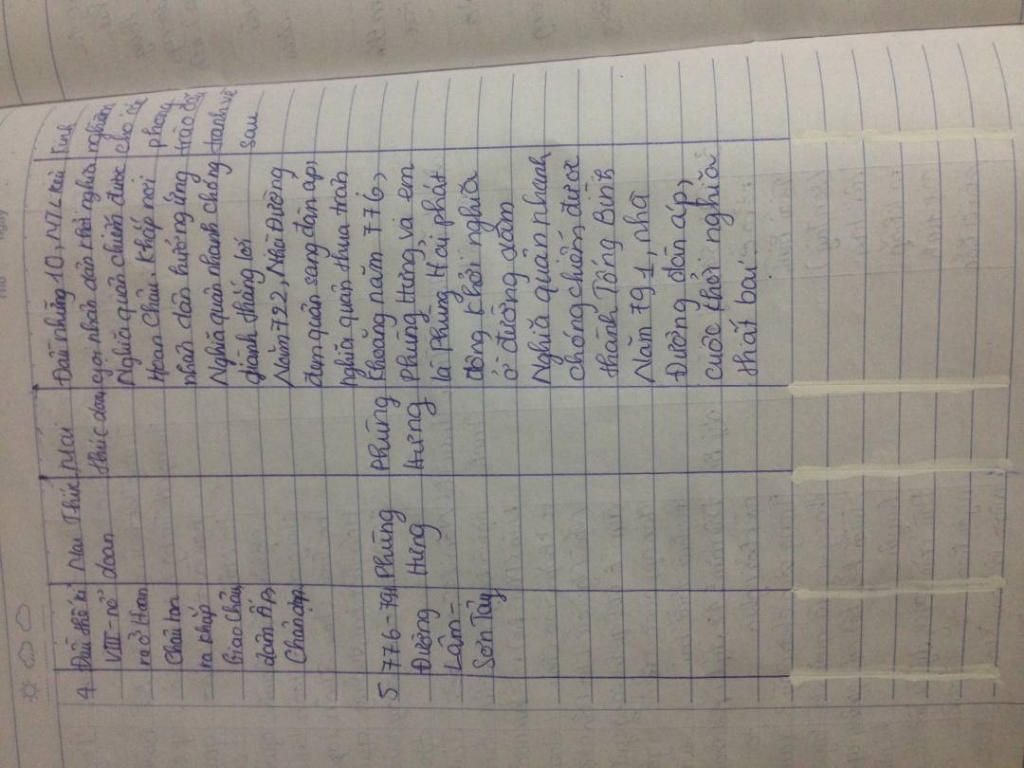 4
Đầu thế kỉ
VIII - nổ
ra ở Hoan
Châu lan
ra khắp
Giao Châu,
dân
Mai Thúc
doan
Mai
thúc doan
Đầu những 10,
gọi nhân dân khởi nghĩa
Nghĩa quân chiến được
Hoan Châu. Khắp nơi
nhân dân hưởng ứng
Nghĩa quân nhanh chóng
giành thắng lợi
Năm 722, Nhà Đường
đem quân sang đàn áp,
nghĩa quân thua trận
cho các
phong
trào đấu
tranh về
sau
5
776-791
Đường
Lâm -
Sơn Tây
Phùng
Hưng
Phùng
Hưng
Khoảng năm 776,
Phùng Hưng và em
là Phùng Hải phát
động khởi nghĩa
ở đường Lâm
Nghĩa quân nhanh
chóng chiếm được
thành Tống Bình
Năm 791, nhà
Đường đàn áp,
cuộc khởi nghĩa
thất bại